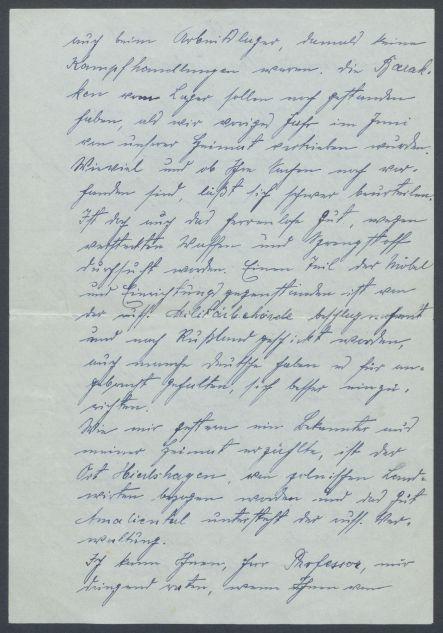 auch beim Arbeitslager, damals keine
Kampfhandlungen waren. Die Barak-
ken vom Lager sollen noch gestanden
haben, als wir voriges Jahr im Juni
von unserer Heimat vertrieben wurden.
Wieviel und ob Ihre Sachen noch vor-
handen sind, läßt sich schwer beurteilen.
Ist doch auch das herrenlose Gut, wegen
versteckte Waffen und Sprengstoff
durchsucht worden. Einen Teil der Möbel
und Einrichtungsgegenständen ist von
der russ. Militärbehörde beschlagnahmt
und nach Rußland geschickt worden,
auch manche Deutsche haben es für an-
gebracht gehalten, sich besser einzu-
richten.
Wie mir gestern ein Bekannter aus
meiner Heimat erzählte, ist der
Ort Hierlshagen, von polnischen Land-
wirten bezogen worden und das Gut
Amaliental untersteht der russ. Ver-
waltung.
Ich kann Ihnen, Herr Professor, nur
dringend raten, wenn Ihnen von